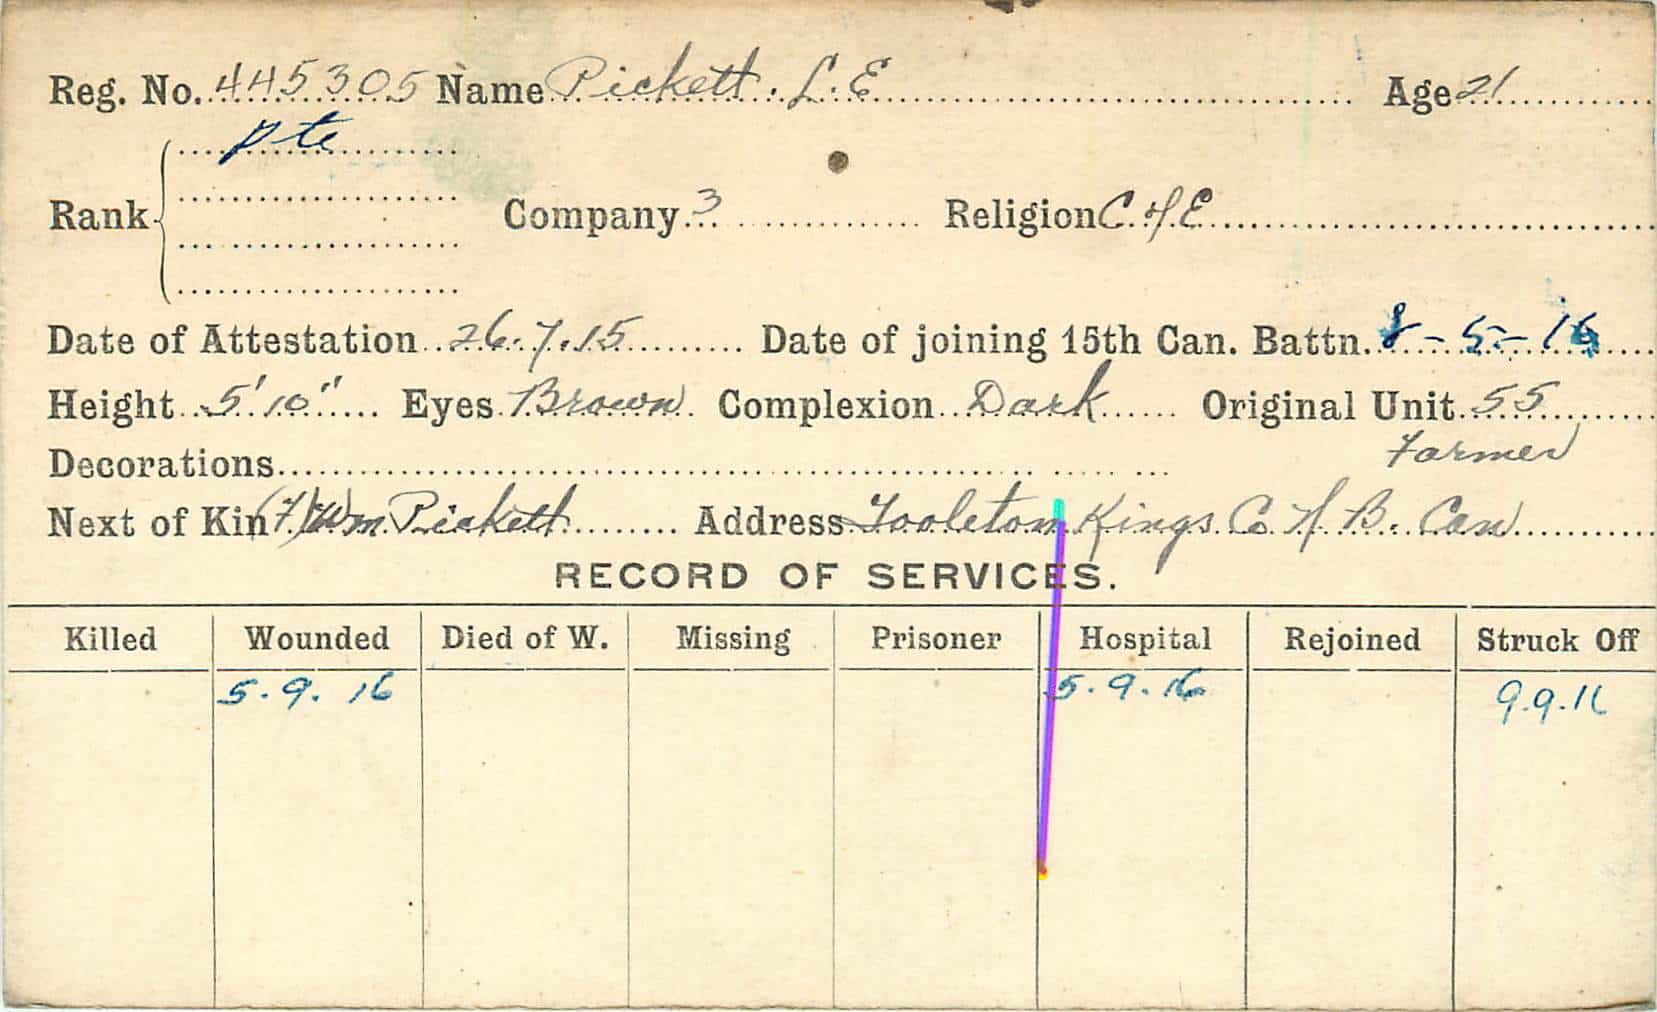 Reg. No. 445305 Name Pickett. L. E Age 21
Pte
Rank Company 3 Religion C. of E
Date of Attestation 26.7.15 Date of joining 15th Can. Battn. 8-5-16
Height 5'10" Eyes Brown Complexion Dark Original Unit 55
Decorations Farmer
Next of Kin (F) Wm Pickett Address Tooleton Kings Co N. B. Can
RECORD OF SERVICES.
Killed Wounded Died of W. Missing Prisoner Hospital Rejoined Struck Off
5.9.16 5.9.16 9.9.16